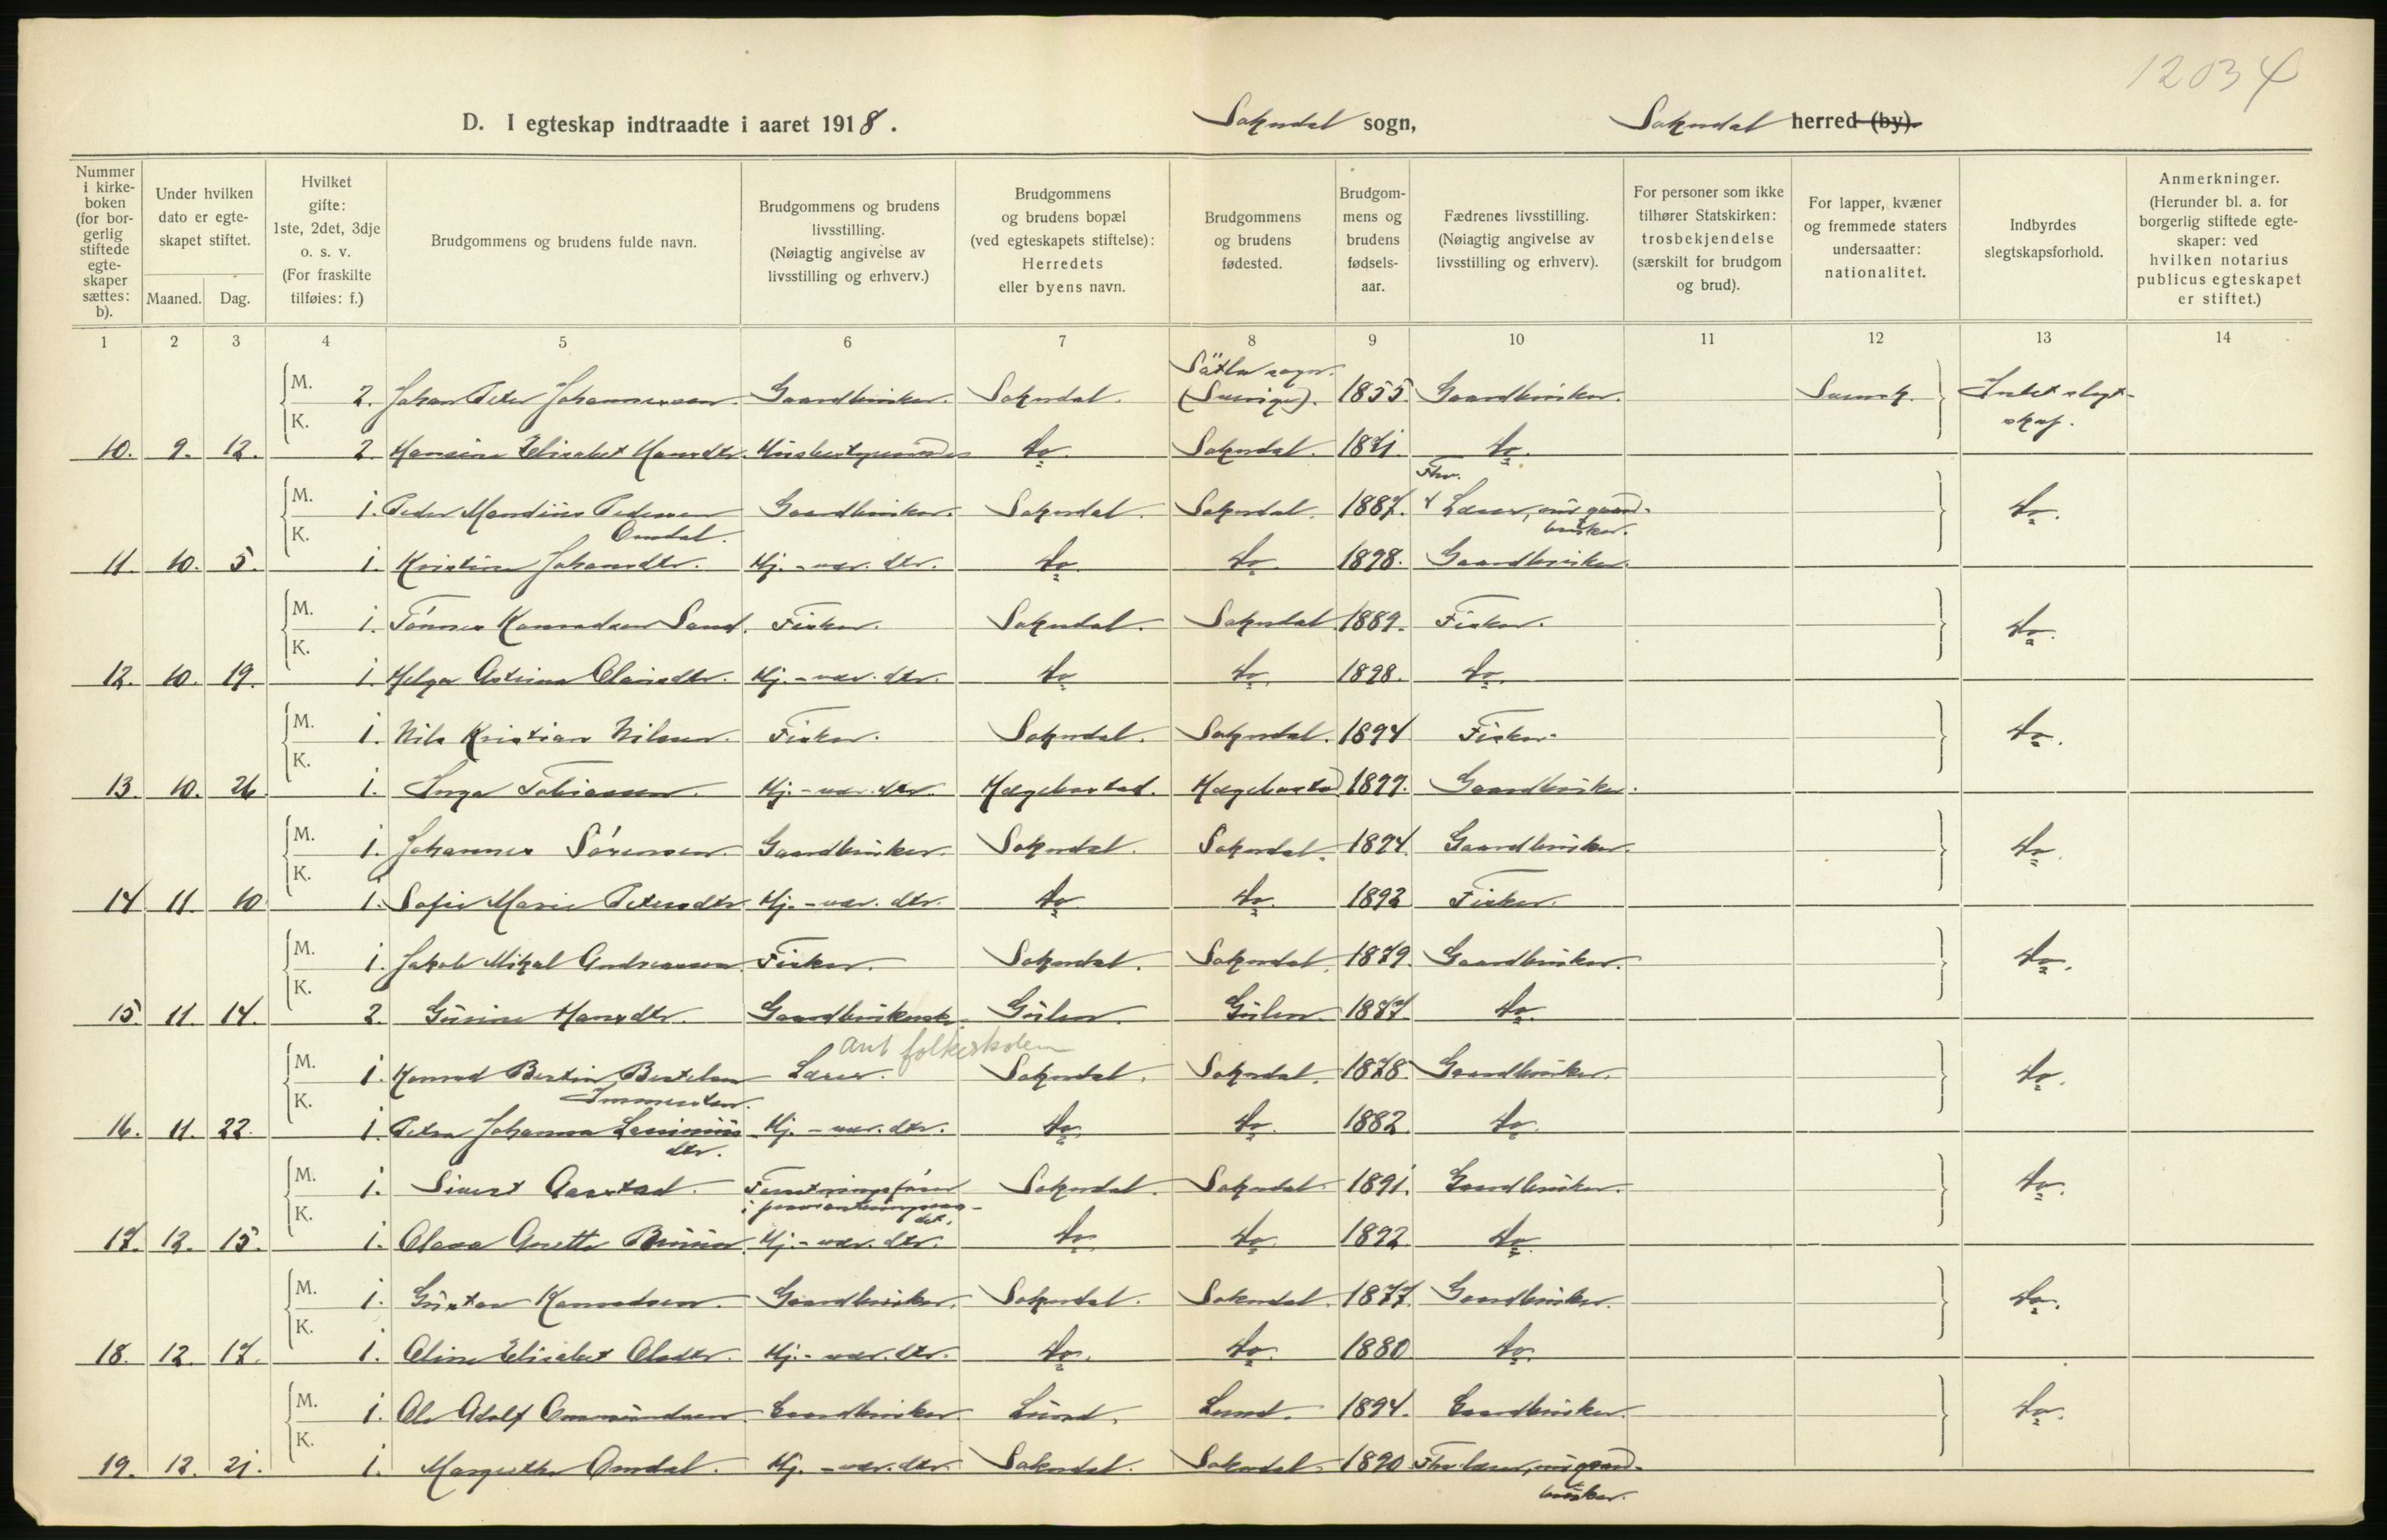 12034
D. I egteskap indtraadte i aaret 1918. Sokndal sogn, Sokndal herred (by).
Nummer i kirkeboken (for borgerlig stiftede egteskaper sættes: b).
Under hvilken dato er egteskapet stiftet.
Maaned. Dag.
Hvilket gifte: 1ste, 2det, 3dje o. s. v. (For fraskilte tilføies: f.)
Brudgommens og brudens fulde navn.
Brudgommens og brudens livsstilling. (Nøiagtig angivelse av livsstilling og erhverv.)
Brudgommens og brudens bopæl (ved egteskapets stiftelse): Herredets eller byens navn.
Brudgommens og brudens fødested.
Brudgommens og brudens fødselsaar.
Fædrenes livsstilling. (Nøiagtig angivelse av livsstilling og erhverv).
For personer som ikke tilhører Statskirken: trosbekjendelse (særskilt for brudgom og brud).
For lapper, kvæner og fremmede staters undersaatter: nationalitet.
Indbyrdes slegtskapsforhold.
Anmerkninger. (Herunder bl. a. for borgerlig stiftede egteskaper: ved hvilken notarius publicus egteskapet er stiftet.)
1 2 3 4 5 6 7 8 9 10 11 12 13 14
M. 2. Johan Peter Johannessen. Gaardbruker. Sokndal. Sätla sogn. (Sverige). 1855. Gaardbruker. Svensk. Intet slegtskap.
10. 9. 12. K. 2. Hansine Elisabet Hansdtr. Husbestyrerinde do. Sokndal. 1871. do.
M. 1. Peder Mandius Pedersen Omdal. Gaardbruker. Sokndal. Sokndal. 1887. Fhv. Lærer, nu gaardbruker. do.
11. 10. 5. K. 1. Kristine Johansdtr. Hj.-vær. dtr. do. do. 1898. Gaardbruker.
M. 1. Tønnes Konradsen Sand. Fisker. Sokndal. Sokndal. 1889. Fisker. do.
12. 10. 19. K. 1. Helga Astrine Olaisdtr. Hj.-vær. dtr. do do. 1898. do.
M. 1. Nils Kristian Nilsen. Fisker. Sokndal. Sokndal. 1894 Fisker. do.
13. 10. 26. K. 1. Inga Tobiassen. Hj.-vær. dtr. Hægebostad. Hægebostad 1899. Gaardbruker.
M. 1. Johannes Sørensen. Gaardbruker. Sokndal. Sokndal. 1894. Gaardbruker. do.
14 11. 10 K. 1. Sofie Marie Petersdtr. Hj.-vær. dtr. do. do. 1892 Fisker.
M. 1. Jakob Mikal Andreassen. Fisker. Sokndal. Sokndal. 1879. Gaardbruker. do.
15. 11. 14. K. 2. Gurine Hansdtr. Gaardbrukersk. Gulen. Gulen. 1877. do.
M. 1. Konrad Bertin Bertelsen Immerstein. Lærer. ant folkeskolen Sokndal. Sokndal. 1878. Gaardbruker. do.
16. 11. 22. K. 1. Petra Johanna Lassiniusdtr. Hj.-vær. dtr. do. do. 1882. do.
M. 1. Sivert Aarstad. Forretningsfører i provianteringsraadet. Sokndal. Sokndal. 1891. Gaardbruker. do.
17. 12. 15. K. 1. Olava Anette Bruun. Hj.-vær. dtr. do. do. 1892. do.
M. 1. Gustav Konradsen. Gaardbruker. Sokndal. Sokndal. 1877. Gaardbruker. do.
18. 12. 17. K. 1. Oline Elisabet Olsdtr. Hj.-vær. dtr. do. do. 1880 do.
M. 1. Ole Adolf Ommundsen. Gaardbruker. Lund. Lund. 1894. Gaardbruker. do.
19. 12. 21. K. 1. Margrethe Omdal. Hj.-vær. dtr. Sokndal. Sokndal. 1890 Fhv lærer, nu gaardbruker.